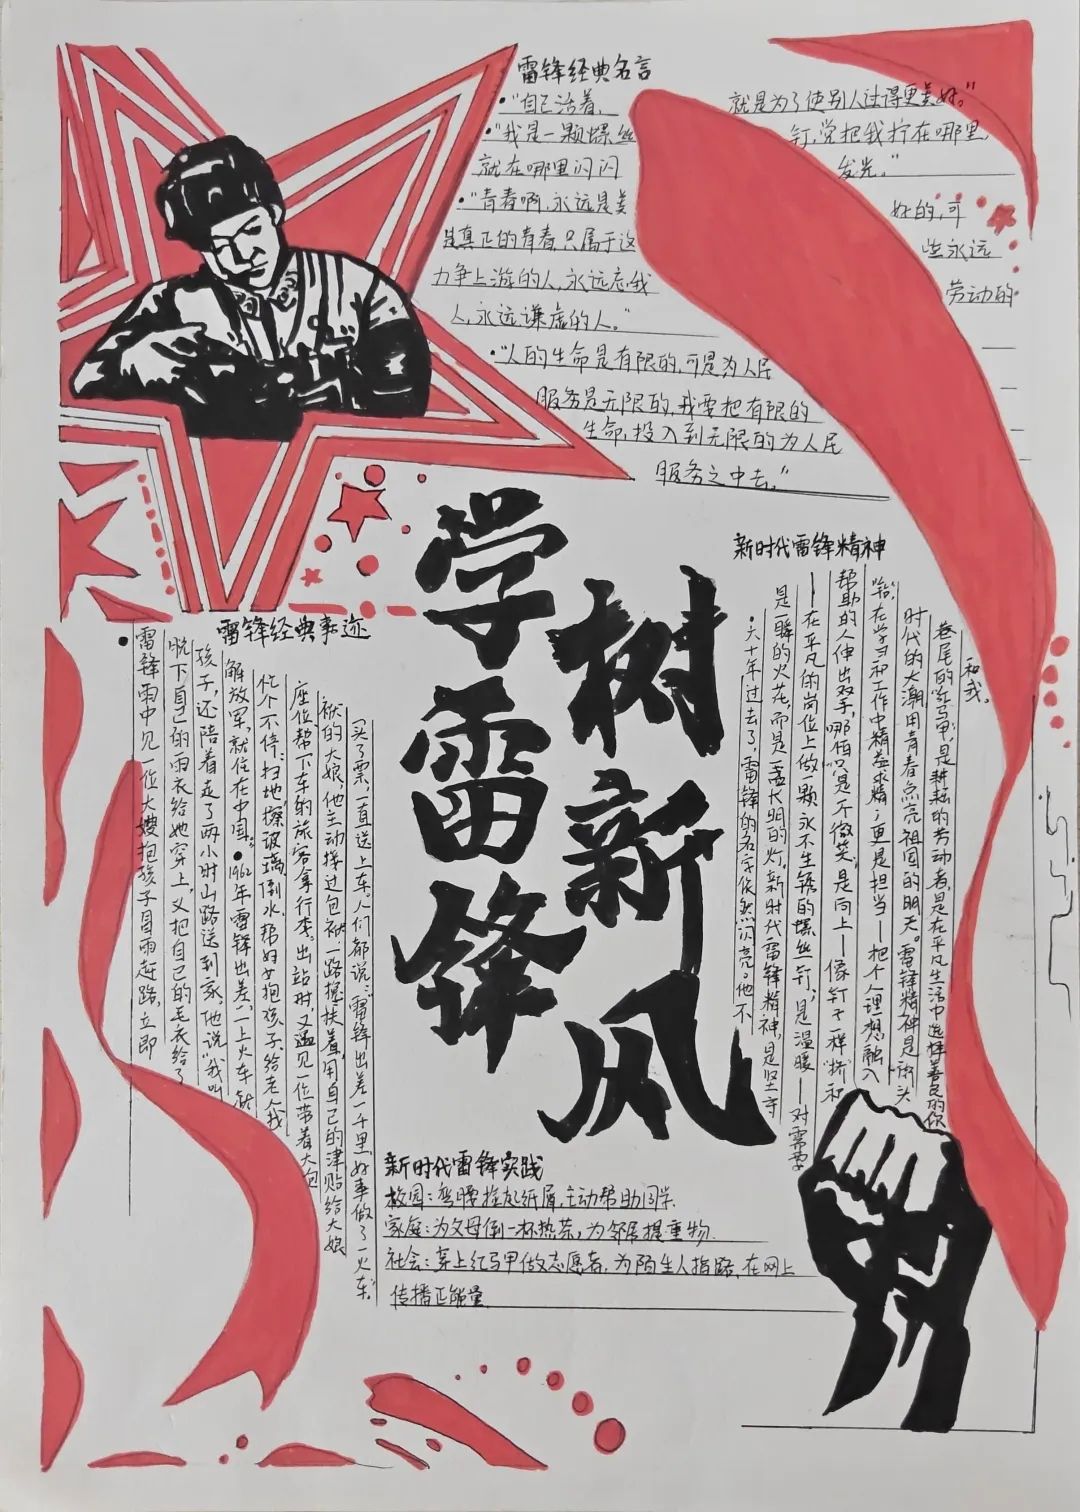 雷锋经典名言
•"自己活着,就是为了使别人过得更美好。"
•"我是一颗螺丝钉,党把我拧在哪里,
就在哪里闪闪发光。"
•"青春啊,永远是美好的,可
是真正的青春,只属于这些永远
力争上游的人,永远忘我劳动的
人,永远谦虚的人。"
•"人的生命是有限的,可是为人民
服务是无限的,我要把有限的
生命,投入到无限的为人民
服务之中去。"
学雷锋
树新风
雷锋经典事迹
•雷锋雨中见一位大嫂抱孩子冒雨赶路,立即
脱下自己的雨衣给她穿上,又把自己的毛衣给了
孩子,还陪着走了两小时山路送到家,他说"我叫
解放军,就住在中国。•1962年雷锋出差,一上火车就
忙个不停:扫地,擦玻璃,倒水,帮妇女抱孩子,给老人找
座位,帮下车的旅客拿行李。出站时,又遇见一位带着大包
袱的大娘,他主动接过包袱,一路搀扶着,用自己的津贴给大娘
买了票,一直送上车,人们都说:雷锋出差一千里,好事做了一火车。
新时代雷锋精神
•六十年过去了,雷锋的名字依然闪亮。他不
是一瞬的火花,而是一盏长明的灯,新时代雷锋精神,是坚守
—在平凡的岗位上做一颗永不生锈的螺丝钉;是温暖—对需要
帮助的人伸出双手,哪怕只是个微笑;是向上—像钉子一样"挤"和
"钻",在学习和工作中精益求精;更是担当—把个人理想融入
时代的大潮,用青春点亮祖国的明天。雷锋精神是街头
巷尾的红马甲,是耕耘的劳动者,是在平凡生活中选择善良的你
和我。
新时代雷锋实践
校园:弯腰捡起纸屑,主动帮助同学
家庭:为父母倒一杯热茶,为邻居提重物.
社会:穿上红马甲做志愿者,为陌生人指路,在网上
传播正能量.